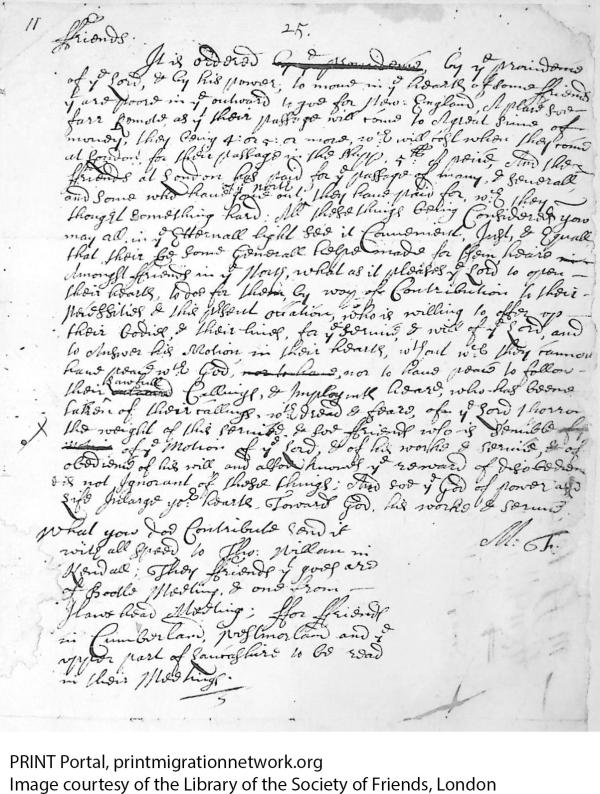 11
25.
ffriends:
It is ordered by ye providence by ye providence
of ye Lord, & by his power, to move in ye hearts of some ffriends
yt are poore in ye outward to goe for New: England, A place soe
farr remote as yt their passage will come to A great sume of
money, they being 4: or 5: or more, wch will cost when they come
at London, for their passage in the shipp, 5ll of peice, And the
ffriends at London has paid for ye passage of many, & severall
and some who have gone out, they have paid for, wch they
thought something hard. All these things being Considered you
may all in ye Etternall light see it Convenient, Just, & Equall
that their be some Generall helpe made for them heare
Amongst ffriends in ye North, what as it pleaseth ye Lord to open
their hearts, to doe for them by way of Contribution to their
necessities & this present ocation, who is willing to offer up
their bodies, & their lives, for ye service, & will of ye Lord, and
to Answer his Motion in their hearts, without wch they cannot
have peace wth God, nor to have peace to follow
their lawfull Callings, & Imploymts heare, who has beene
taken of their callings, wth dread & feare, of ye Lord & horror
the weight of this service, & soe ffriends who is sensible
of ye Motion of ye Lord, & of his worke & service, & of
obedience of his will and allsoe knowes ye reward of disobedience
is not Ignorant of these things: And soe ye God of power and
life Inlarge your hearts Toward God, his worke & service
M: F:
what you doe Contribute send it
with all speed to Tho: Willan in
Kendall; They ffriends yt goes are
of Bootle Meeting, & one from
Hawkshead Meeting; ffor ffriends
in Cumberland, westmorland and ye
upper part of Lancashire to be read
in their Meetings.
PRINT Portal, printmigrationnetwork.org
Image courtesy of the Library of the Society of Friends, London